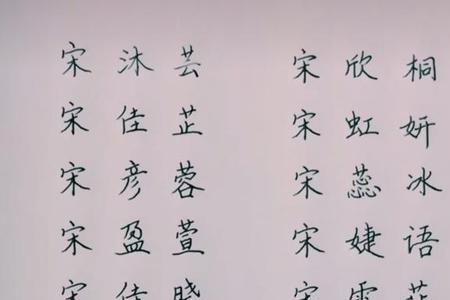 宋沐芸 宋欣桐
宋佳芷 宋虹妍
宋彦蓉 宋蕊冰
宋盈萱 宋婕语
宋佳晓 宋雪